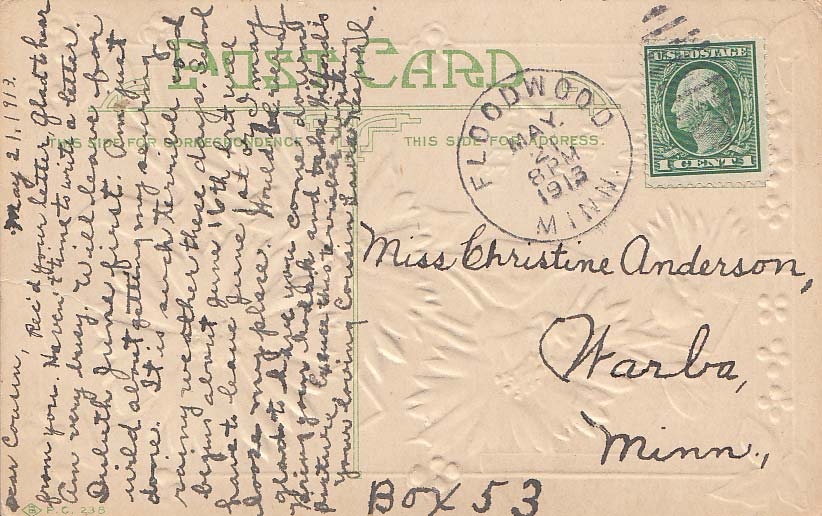 POST CARD
THIS SIDE FOR CORRESPONDENCE
THIS SIDE FOR ADDRESS.
U.S. POSTAGE
1 CENT 1
FLOODWOOD
MAY.
8 PM
1913
MINN.
Miss Christine Anderson,
Warba,
Minn.,
Box 53
May 21, 1913.
Dear Cousin, Rec'd your letter, Glad to hear
from you. Haven't time to write a letter.
Am very busy. Will leave for
Duluth June first. Am just
wild about getting my sewing
done. It is such terrible cold
rainy weather these days. School
begins about June 16th or we
have to leave June 1st or I may
loose my place. Would be very
glad to have you come down.
Bring your kodak and take
picture. Excuse this writing
Your loving Cousin
P.C. 238